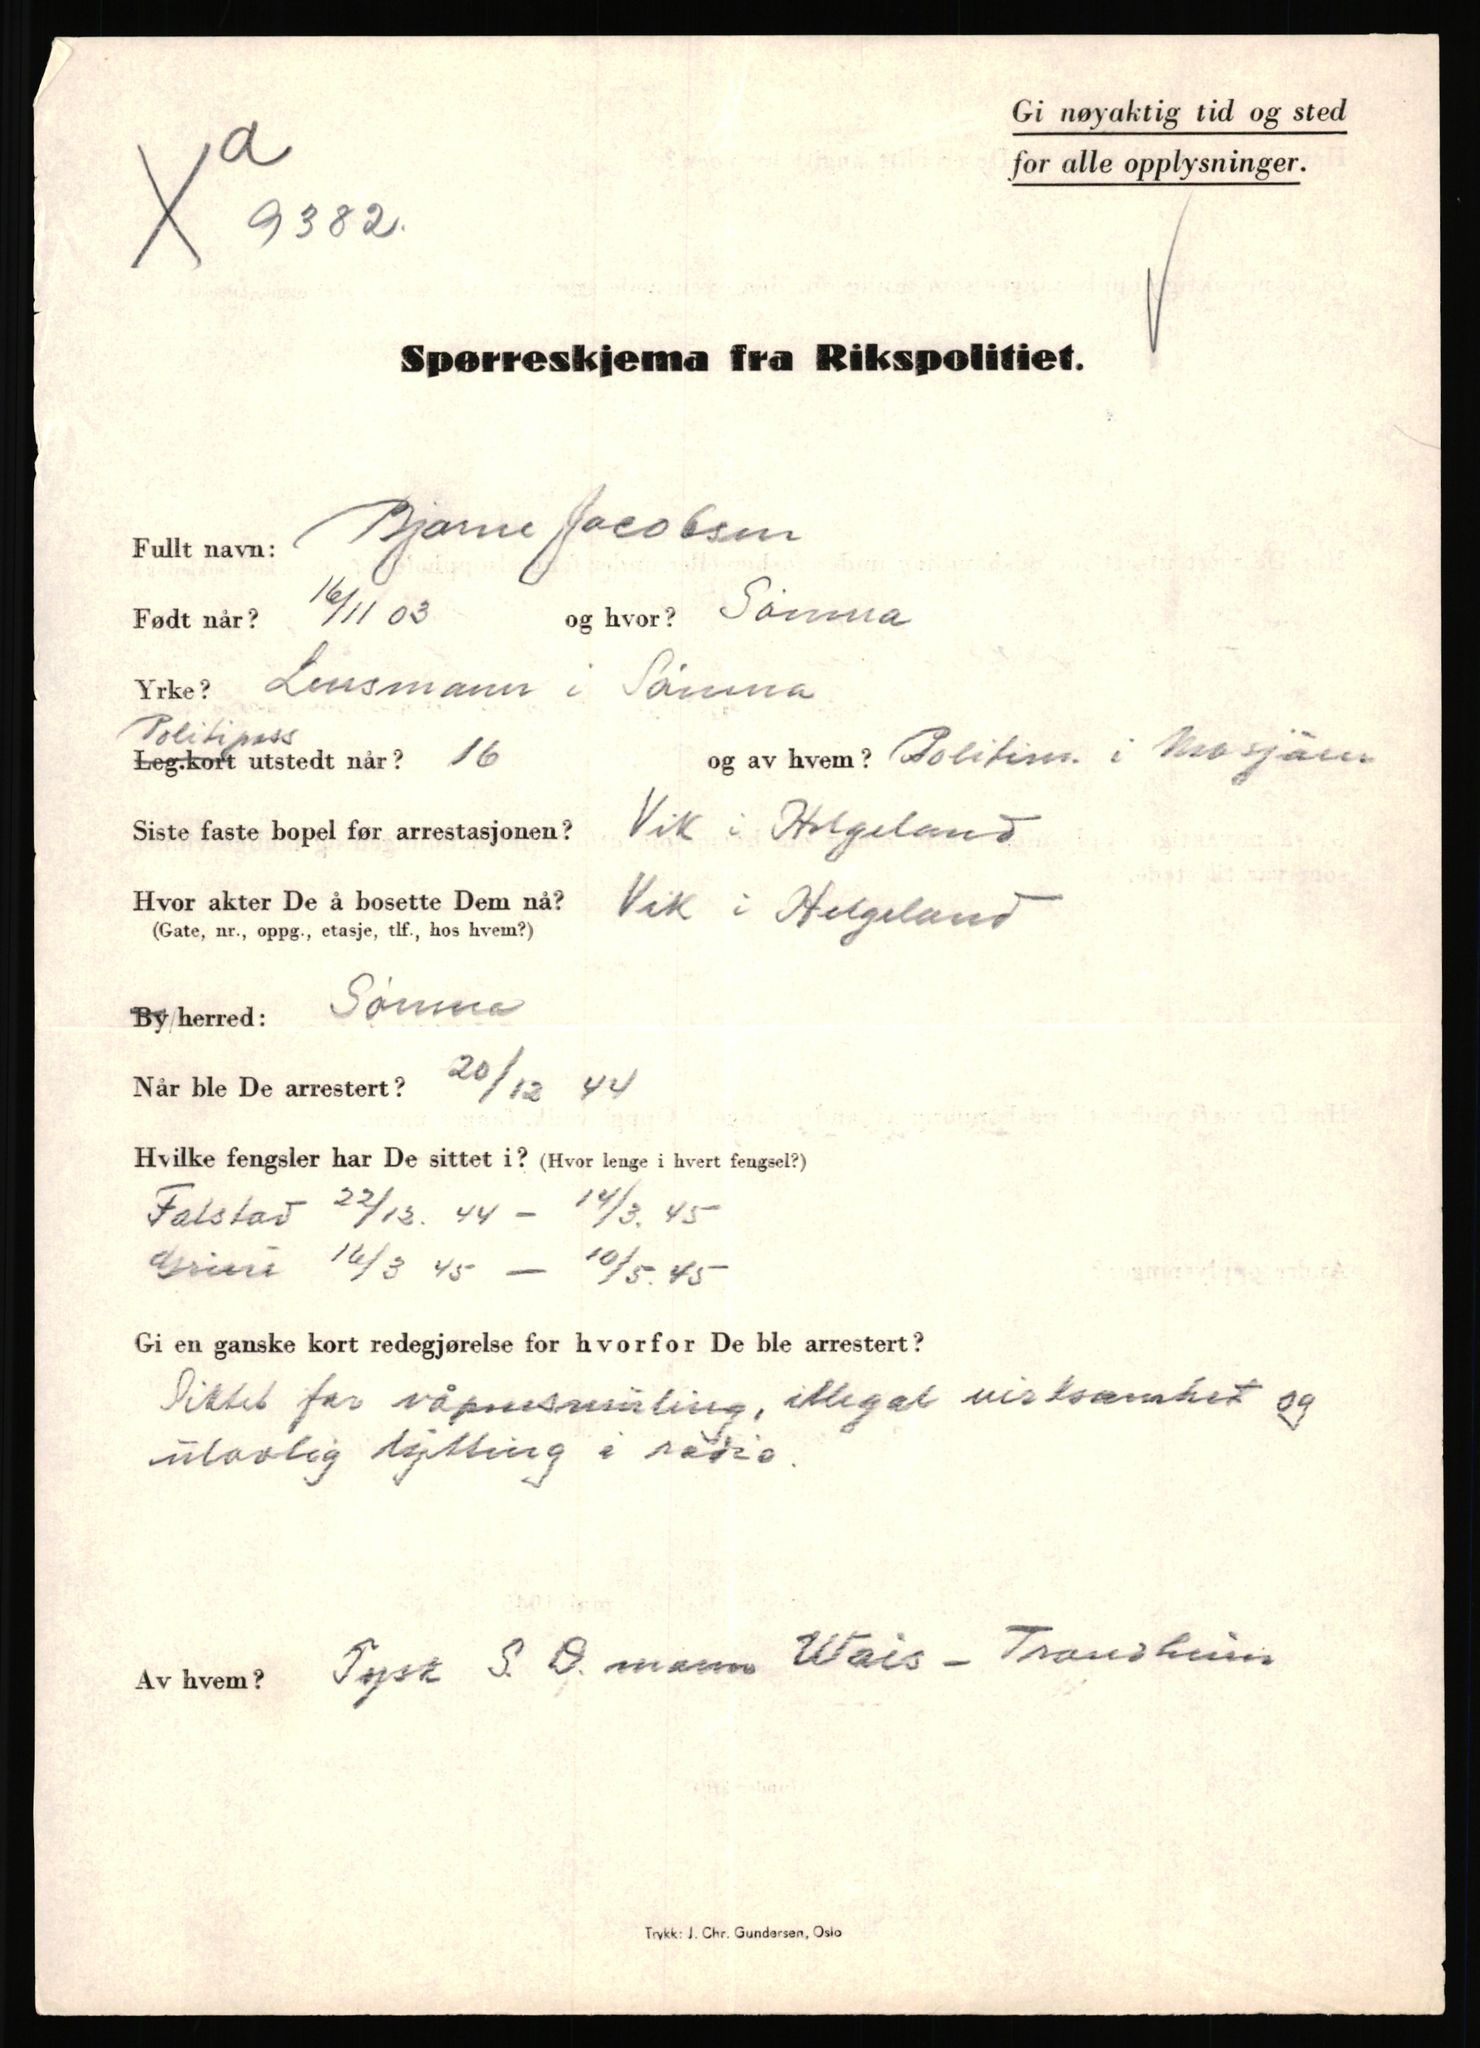 Gi nøyaktig tid og sted
for alle opplysninger.
X a
9382.
Spørreskjema fra Rikspolitiet.
Fullt navn: Bjarne Jacobsen
Født når? 16/11 03 og hvor? Sømna
Yrke? Lensmann i Sømna
Politipass
Leg.kort utstedt når? 16 og av hvem? Politim. i Mosjøen
Siste faste bopel før arrestasjonen? Vik i Helgeland
Hvor akter De å bosette Dem nå? Vik i Helgeland
(Gate, nr., oppg., etasje, tlf., hos hvem?)
By/herred: Sømna
Når ble De arrestert? 20/12 44
Hvilke fengsler har De sittet i? (Hvor lenge i hvert fengsel?)
Falstad 22/12. 44 – 14/3. 45
Grini 16/3 45 – 10/5. 45
Gi en ganske kort redegjørelse for hvorfor De ble arrestert?
Siktet for våpensmugling, illegal virksomhet og
ulovlig lytting i radio.
Av hvem? Tysk S. D. mann Wais – Trondheim
Trykk: J. Chr. Gundersen, Oslo